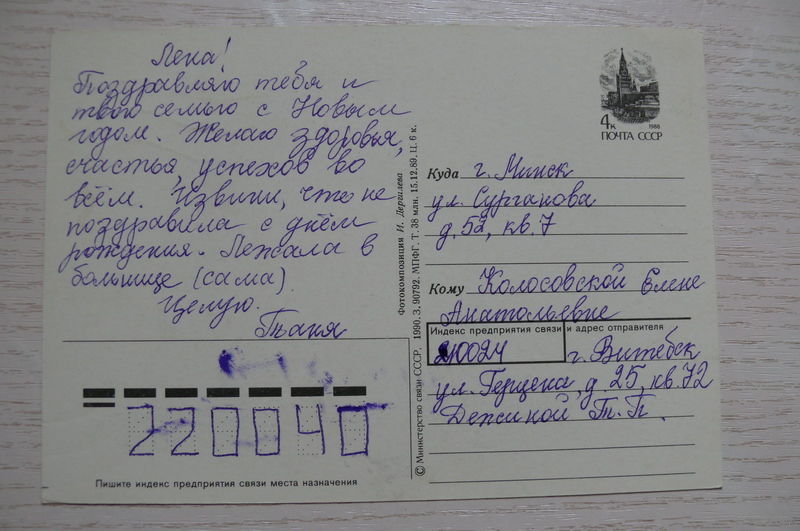 Лена!
Поздравляю тебя и
твою семью с Новым
годом. Желаю здоровья,
счастья, успехов во
всём. Извини, что не
поздравила с днём
рождения. Лежала в
больнице (сама).
Целую.
Таня
220040
Пишите индекс предприятия связи места назначения
© Министерство связи СССР. 1990. З. 90792. МПФГ. Т. 38 млн. 15.12.89. Ц. 6 к.
Фотокомпозиция И. Дергилева
4к 1988
ПОЧТА СССР
Куда г. Минск
ул. Сурганова
д. 52, кв. 7
Кому Колосовской Елене
Анатольевне
Индекс предприятия связи и адрес отправителя
210024 г. Витебск
ул. Герцена, д. 25, кв. 72
Дежиной Т. П.